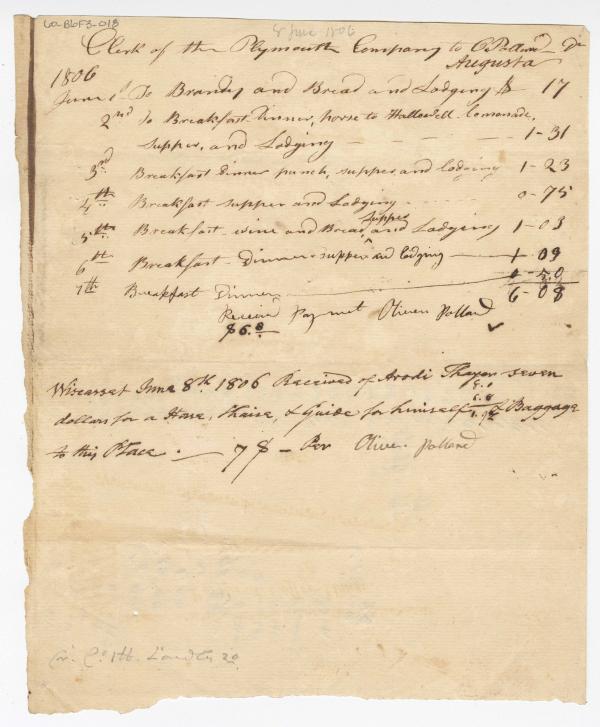 60-B6F3-018
8 June 1806
Clerk of the Plymouth Company to O Pollard Dr
Augusta
1806
June 1st To Brandy and Bread and Lodging $ - 17
2nd To Breakfast Dinner, horse to Hallowell Lemonade,
supper, and Lodging - - - 1-31
3rd Breakfast dinner punch, supper and lodging 1-23
4th Breakfast supper and Lodging 0-75
5th Breakfast wine and Bread, supper and Lodging 1-03
6th Breakfast Dinner supper and lodging 1-09
7th Breakfast Dinner 0-50
6-08
Receivd Paymet Oliver Pollard
$6.8
Wiscasset June 8th 1806 Received of Arodi Thayer seven
dollars for a Horse, Chaise, & Guide for himself & Baggage
to this Place. 7$ - Per Oliver Pollard